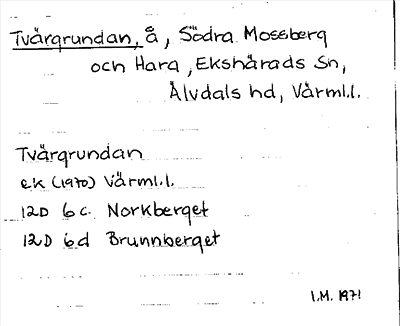 Tvärgrundan, å, Södra Mossberg
och Hara, Ekshärads Sn,
Älvdals hd, Värml.l.
Tvärgrundan
ek (1970) Värml.l.
12D 6c Norkberget
12D 6d Brunnberget
I.M. 1971